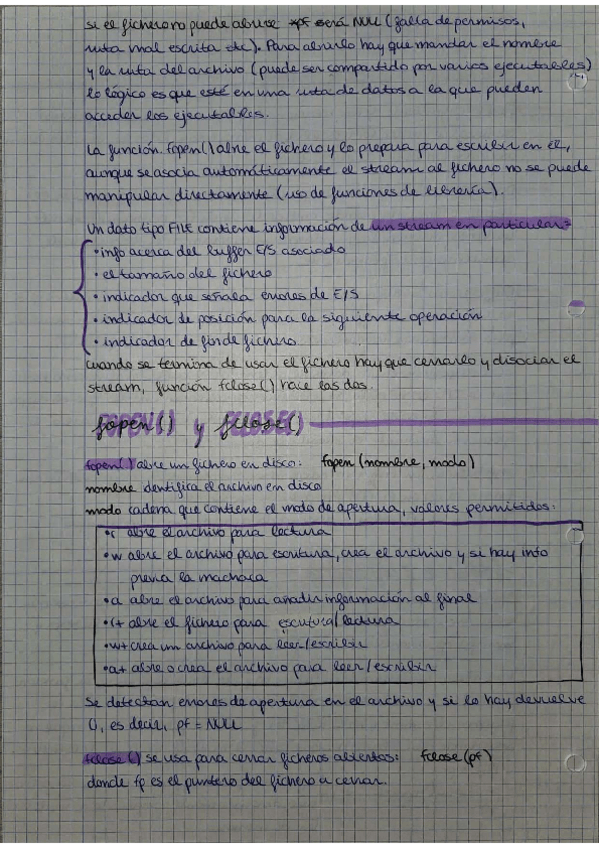 si el fichero no puede abrirse *pf será NULL (falla de permisos,
ruta mal escrita etc). Para abrirlo hay que mandar el nombre
y la ruta del archivo (puede ser compartido por varios ejecutables)
lo lógico es que esté en una ruta de datos a la que pueden
acceder los ejecutables.
La función fopen() abre el fichero y lo prepara para escribir en él,
aunque se asocia automáticamente el stream al fichero no se puede
manipular directamente (uso de funciones de librería).
Un dato tipo FILE contiene información de un stream en particular:
• info acerca del buffer E/S asociado
• el tamaño del fichero
• indicador que señala errores de E/S
• indicador de posición para la siguiente operación
• indicador de fin de fichero
cuando se termina de usar el fichero hay que cerrarlo y disociar el
stream, función fclose() hace las dos.
fopen() y fclose()
fopen() abre un fichero en disco: fopen (nombre, modo)
nombre identifica el archivo en disco
modo cadena que contiene el modo de apertura, valores permitidos:
• r abre el archivo para lectura
• w abre el archivo para escritura, crea el archivo y si hay info
previa la machaca
• a abre el archivo para añadir información al final
• r+ abre el fichero para escritura/lectura
• w+ crea un archivo para leer/escribir
• a+ abre o crea el archivo para leer/escribir
Se detectan errores de apertura en el archivo y si lo hay devuelve
0, es decir, pf = NULL
fclose() se usa para cerrar ficheros abiertos: fclose (pf)
donde fp es el puntero del fichero a cerrar.